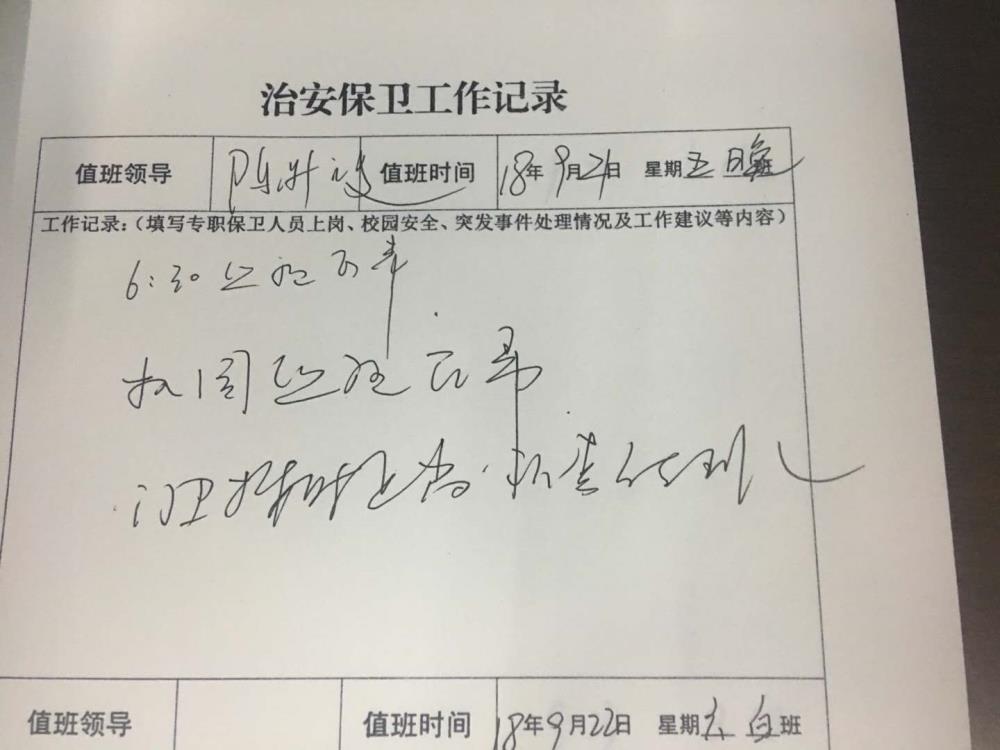 治安保卫工作记录
值班领导 值班时间 18年9月21日 星期五 晚班
工作记录：（填写专职保卫人员上岗、校园安全、突发事件处理情况及工作建议等内容）
6:30 巡视正常
校园巡视正常
门卫 上岗
值班领导 值班时间 18年9月22日 星期六 白班